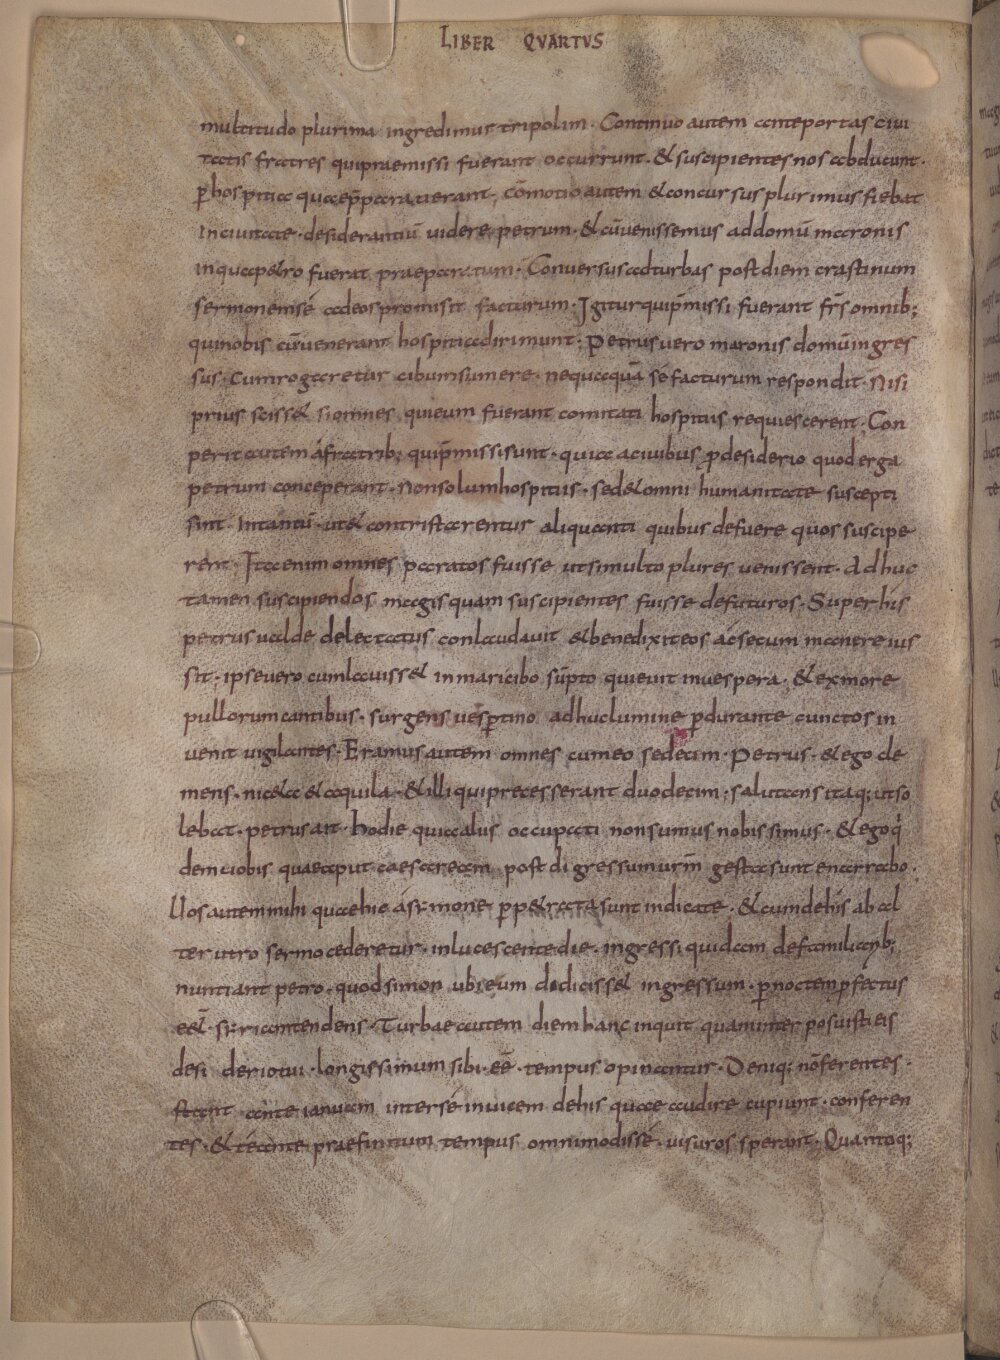 LIBER QVARTVS
multitudo plurima ingredimur tripolim. Continuo autem anteportas ciui
tatis fratres quipraemissi fuerant occurrunt. & suscipientes nos abducunt.
p̱hospitia quaep̄pararuerant; cōmotio autem & concursus plurimus fiebat
inciuitate. desiderantiū uidere petrum. & cūuenissemus addomū maronis
inquapetro fuerat praeparatum. Conuersus adturbas postdiem crastinum
sermonemsé adeospromisit facturum. Igitur quip̄missi fuerant fr̄s omnib;
quinobis cūuenerant hospitiadirimunt; Petrus uero maronis domūingres
sus. cumrogaretur cibumsumere. nequaquā sé facturum respondit. Nisi
prius sciss& siomnes quieum fuerant comitati hospitiis requiescerent. Con
perit autem áfratrib; quip̄missi sunt. quia aciuibus ꝓdesiderio quod erga
petrum conceperant. Nonsolumhospitiis. sed & omni humanitate suscepti
sint. Intantū. ut & contristarentur aliquanti quibus defuere quos suscipe
rent. Ita enim omnes paratos fuisse utsimulto plures uenissent. Adhuc
tamen suscipiendos magis quam suscipientes fuisse defuturos. Super his
petrus ualde delectatus conlaudauit &benedixiteos acsecum manere ius
sit. ipseuero cumlauiss& inmaricibo sūpto quieuit inuespera. & exmore
pullorum cantibus. surgens uesp̱tino adhuclumine p̱durante cunctos in
uenit uigilantes. Eramus autem omnes cumeo sedecim. Petrus. & ego cle
mens. nic&a & aquila. & illi quiprecesserant duodecim; salutans itaq; utso
lebat. petrus ait. hodie quia alus occupati nonsumus nobis simus. & ego q̇
dem uobis quaeaput caesaream post digressum urm̄ gesta sunt enarrabo.
Uos autem mihi quaehic ásimone p̱p&rata sunt indicate. & cumdehis ab al
terutro sermo cederetur. inlucescente die. ingressi quidam defamiliarib;
nuntiant petro. quod simon ubi eum dedicisse& ingressum. p̱noctem p̱fectus
ee& siriamtendens. Turbae autem diem hanc inquit quaminter posuisti eis
desiderio tui. longissimum sibi. eē. tempus opinantur. Deniq; nōferentes.
stant ante ianuam interse inuicem dehis quae audire cupiunt. conferen
tes. & téante praefinitum tempus omnimodissé. uisuros sperant. Quantoq;